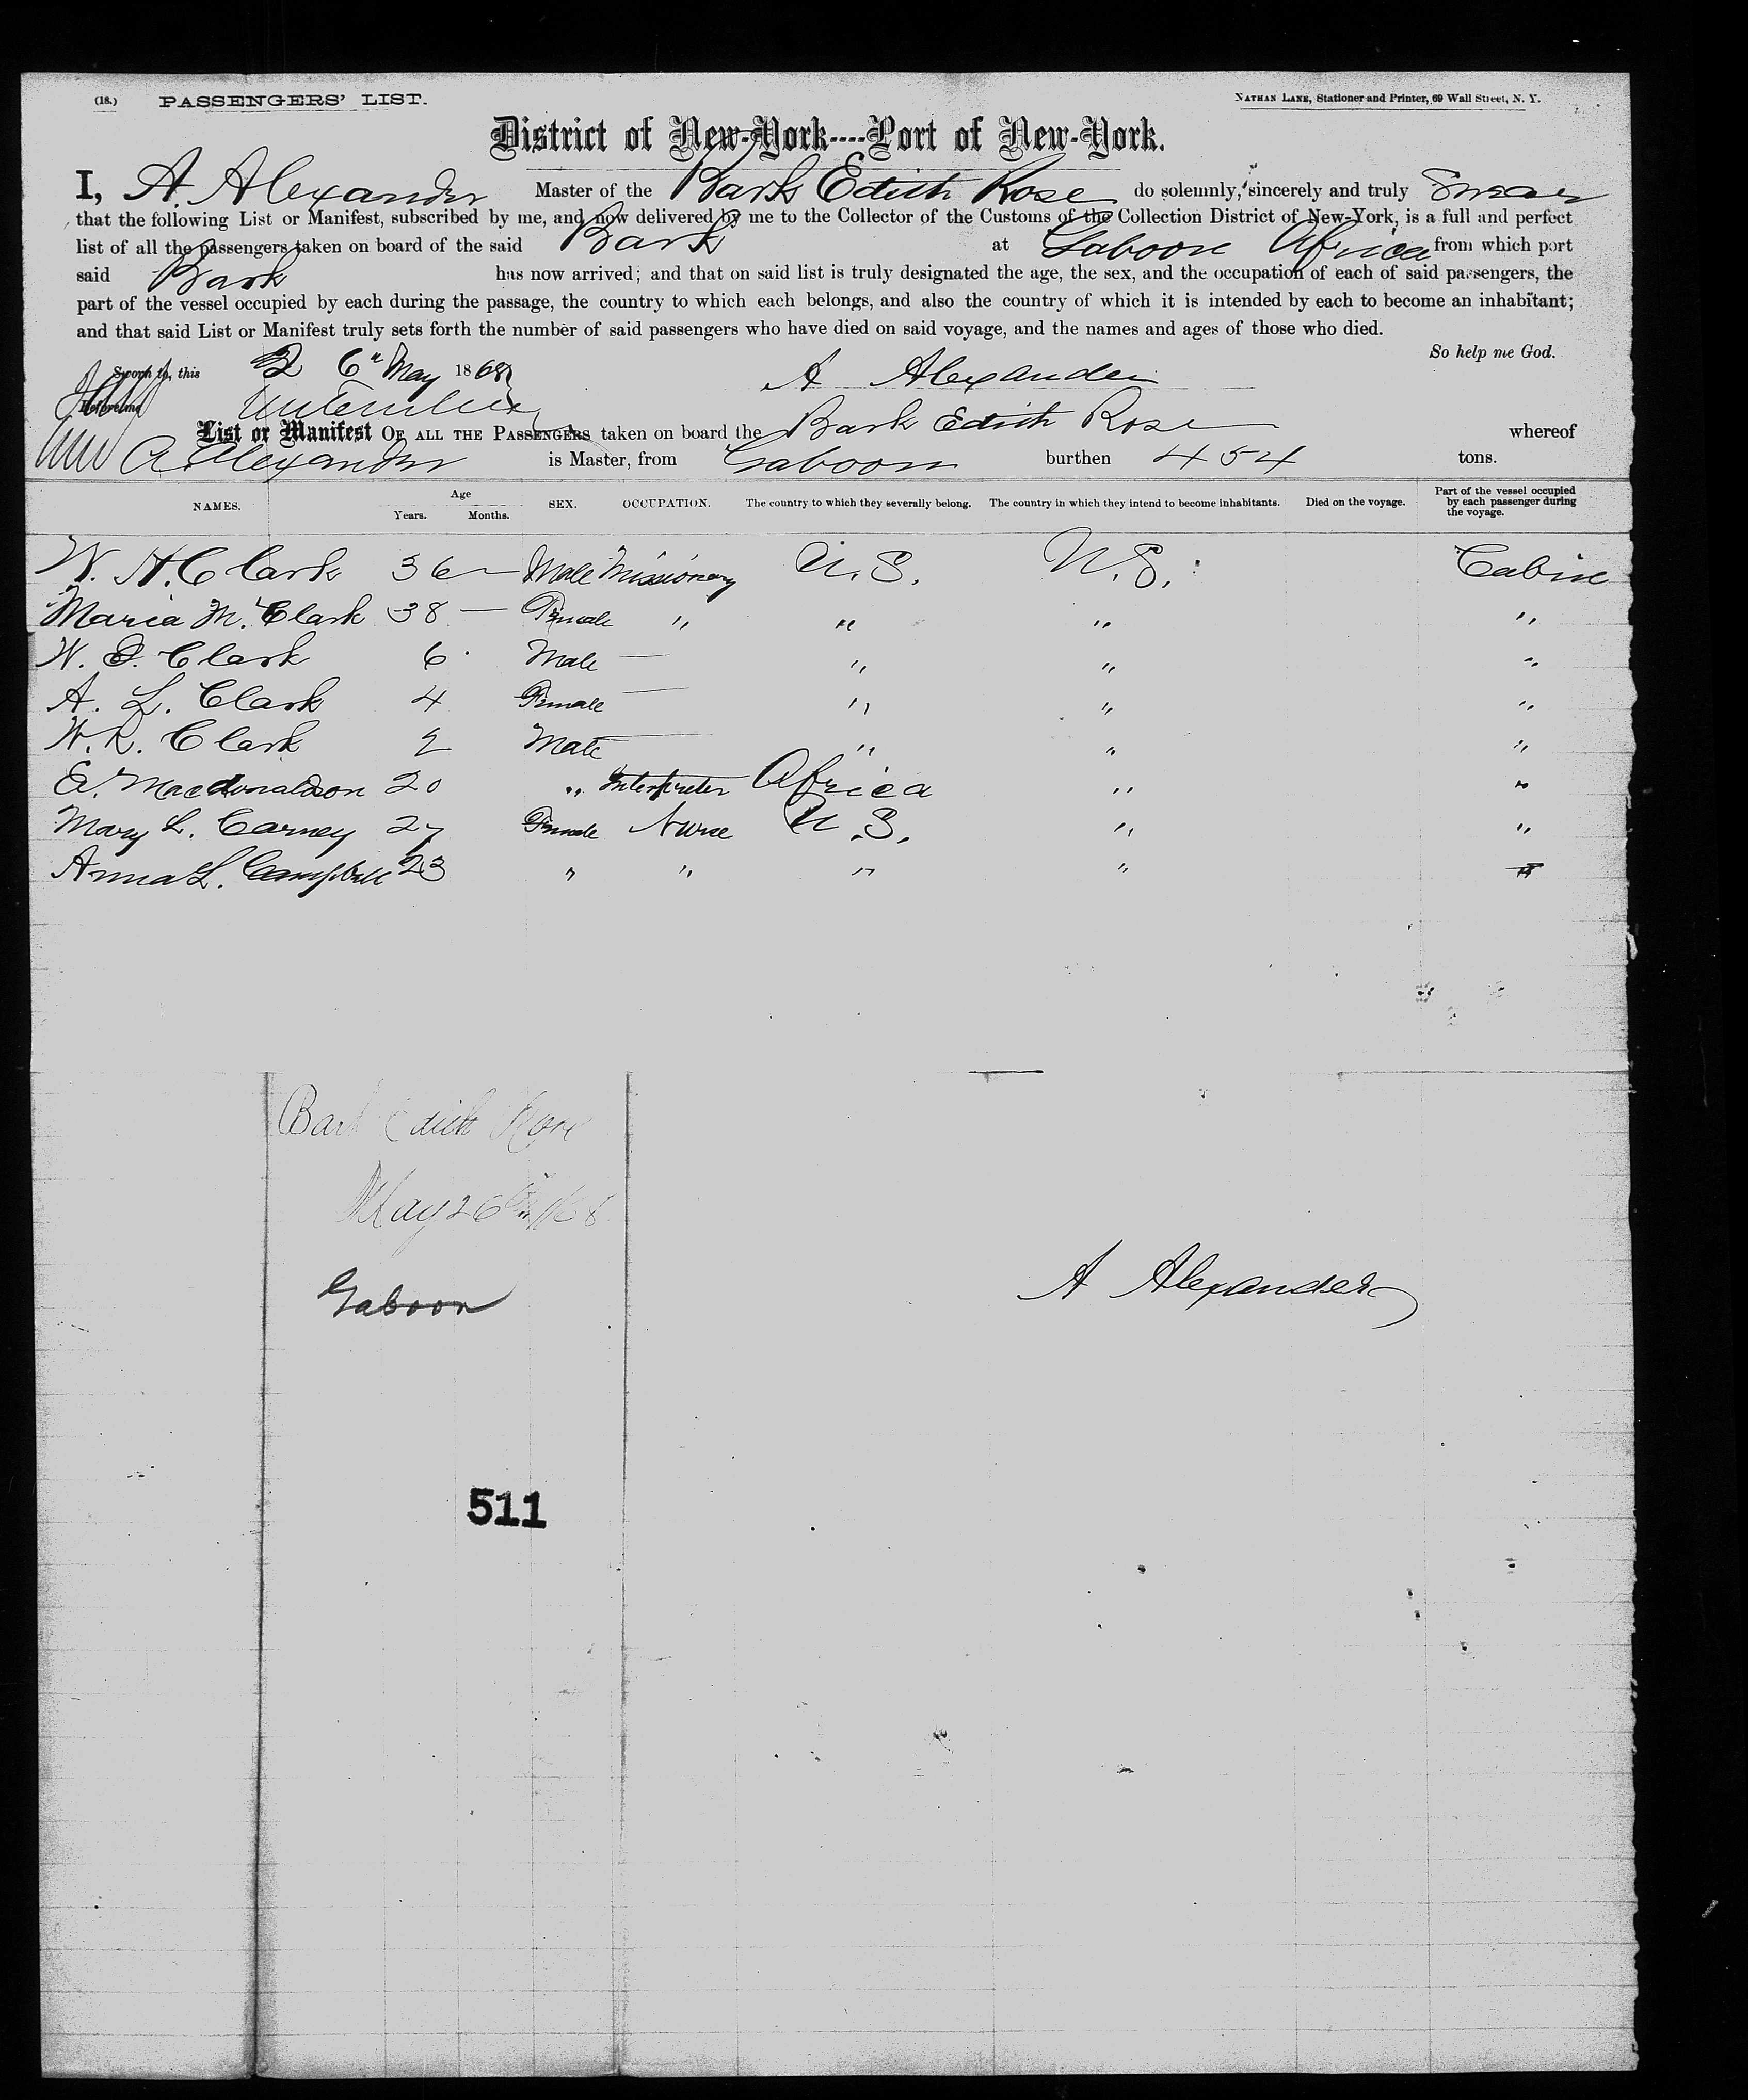 (18.) PASSENGERS' LIST. NATHAN LANE, Stationer and Printer, 69 Wall Street, N. Y.
District of New-York----Port of New-York.
I, A. Alexander Master of the Bark Edith Rose do solemnly, sincerely and truly Swear
that the following List or Manifest, subscribed by me, and now delivered by me to the Collector of the Customs of the Collection District of New-York, is a full and perfect
list of all the passengers taken on board of the said Bark at Gaboon Africa from which port
said Bark has now arrived; and that on said list is truly designated the age, the sex, and the occupation of each of said passengers, the
part of the vessel occupied by each during the passage, the country to which each belongs, and also the country of which it is intended by each to become an inhabitant;
and that said List or Manifest truly sets forth the number of said passengers who have died on said voyage, and the names and ages of those who died.
So help me God.
Sworn to, this 26" May 1868 A Alexander
Before me
List or Manifest OF ALL THE PASSENGERS taken on board the Bark Edith Rose whereof
A. Alexander is Master, from Gaboon burthen 454 tons.
NAMES. Age Years. Months. SEX. OCCUPATION. The country to which they severally belong. The country in which they intend to become inhabitants. Died on the voyage. Part of the vessel occupied by each passenger during the voyage.
W. H. Clark 36 — Male Missionary U.S. U.S. Cabin
Maria M. Clark 38 — Female " " " "
W. Clark 6 Male — " " "
A. L. Clark 4 Female — " " "
W. R. Clark 2 Male — " " "
E. Macdonaldson 20 " Interpreter Africa " "
Mary L. Carney 27 Female Nurse U.S. " "
Anna L. Campbell 23 " " " " "
Bark Edith Rose
May 26th /68
Gaboon
A Alexander
511